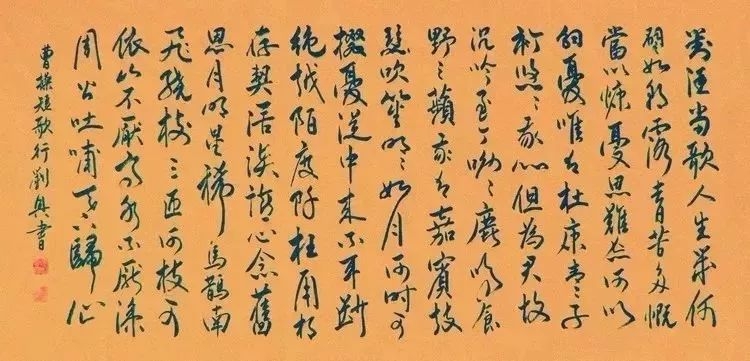 對酒當歌人生幾何
譬如朝露去日苦多慨
當以慷憂思難忘何以
解憂唯有杜康青々子
衿悠々我心但為君故
沉吟至今呦々鹿鳴食
野之蘋我有嘉賓鼓
瑟吹笙明々如月何時可
掇憂從中來不可斷
絕越陌度阡枉用相
存契闊談讌心念舊
恩月明星稀烏鵲南
飛繞枝三匝何枝可
依山不厭高水不厭深
周公吐哺天下歸心
曹操短歌行劉興書